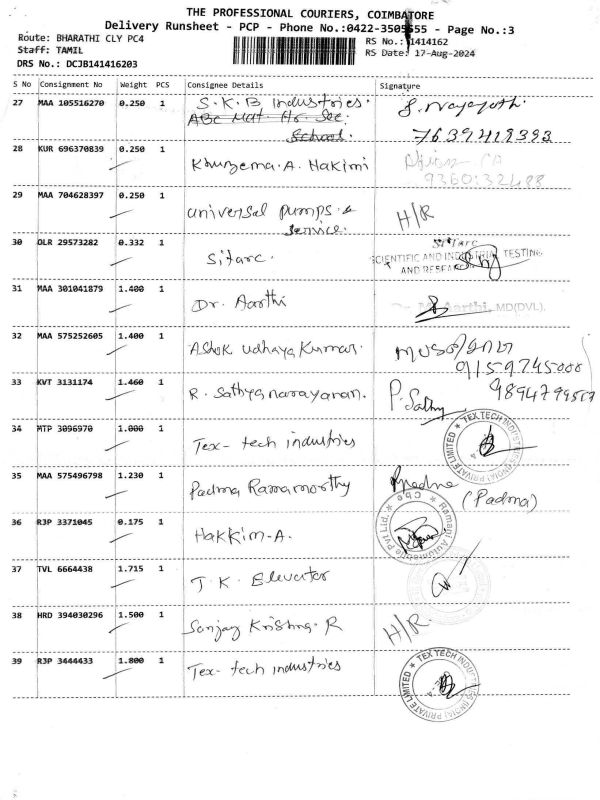 THE PROFESSIONAL COURIERS, COIMBATORE
Delivery Runsheet - PCP - Phone No.:0422-3505555 - Page No.:3
Route: BHARATHI CLY PC4
RS No.: 1414162
Staff: TAMIL
RS Date: 17-Aug-2024
DRS No.: DCJB141416203
S No Consignment No Weight PCS Consignee Details Signature
27 MAA 105516270 0.250 1 S.K.B Industries.
ABC Mat. Hr. Sec.
School.
7639418393
28 KUR 696370839 0.250 1 Khuzema.A. Hakimi
29 MAA 704628397 0.250 1 universal pumps &
service. H/R
30 OLR 29573282 0.332 1 Sitarc. SITarc
SCIENTIFIC AND INDUSTRIAL TESTING
AND RESEARCH
31 MAA 301041879 1.400 1 Dr. Aarthi Aarthi, MD(DVL).
32 MAA 575252605 1.400 1 Ashok udhaya Kumar.
9159745000
33 KVT 3131174 1.460 1 R. Sathyanarayanan. P. Sathy
34 MTP 3096970 1.000 1 Tex-tech industries TEX TECH INDUSTRIES (INDIA) PRIVATE LIMITED
35 MAA 575496798 1.230 1 Padma Ramamorthy Padma
(Padma)
36 RJP 3371045 0.175 1 Hakkim-A. Ramani Automotive Pvt Ltd. Cbe
37 TVL 6664438 1.715 1 T.K. Elevator
38 HRD 394030296 1.500 1 Sanjay Krishna.R H/R.
39 RJP 3444433 1.800 1 Tex-tech industries TEX TECH INDUSTRIES (INDIA) PRIVATE LIMITED